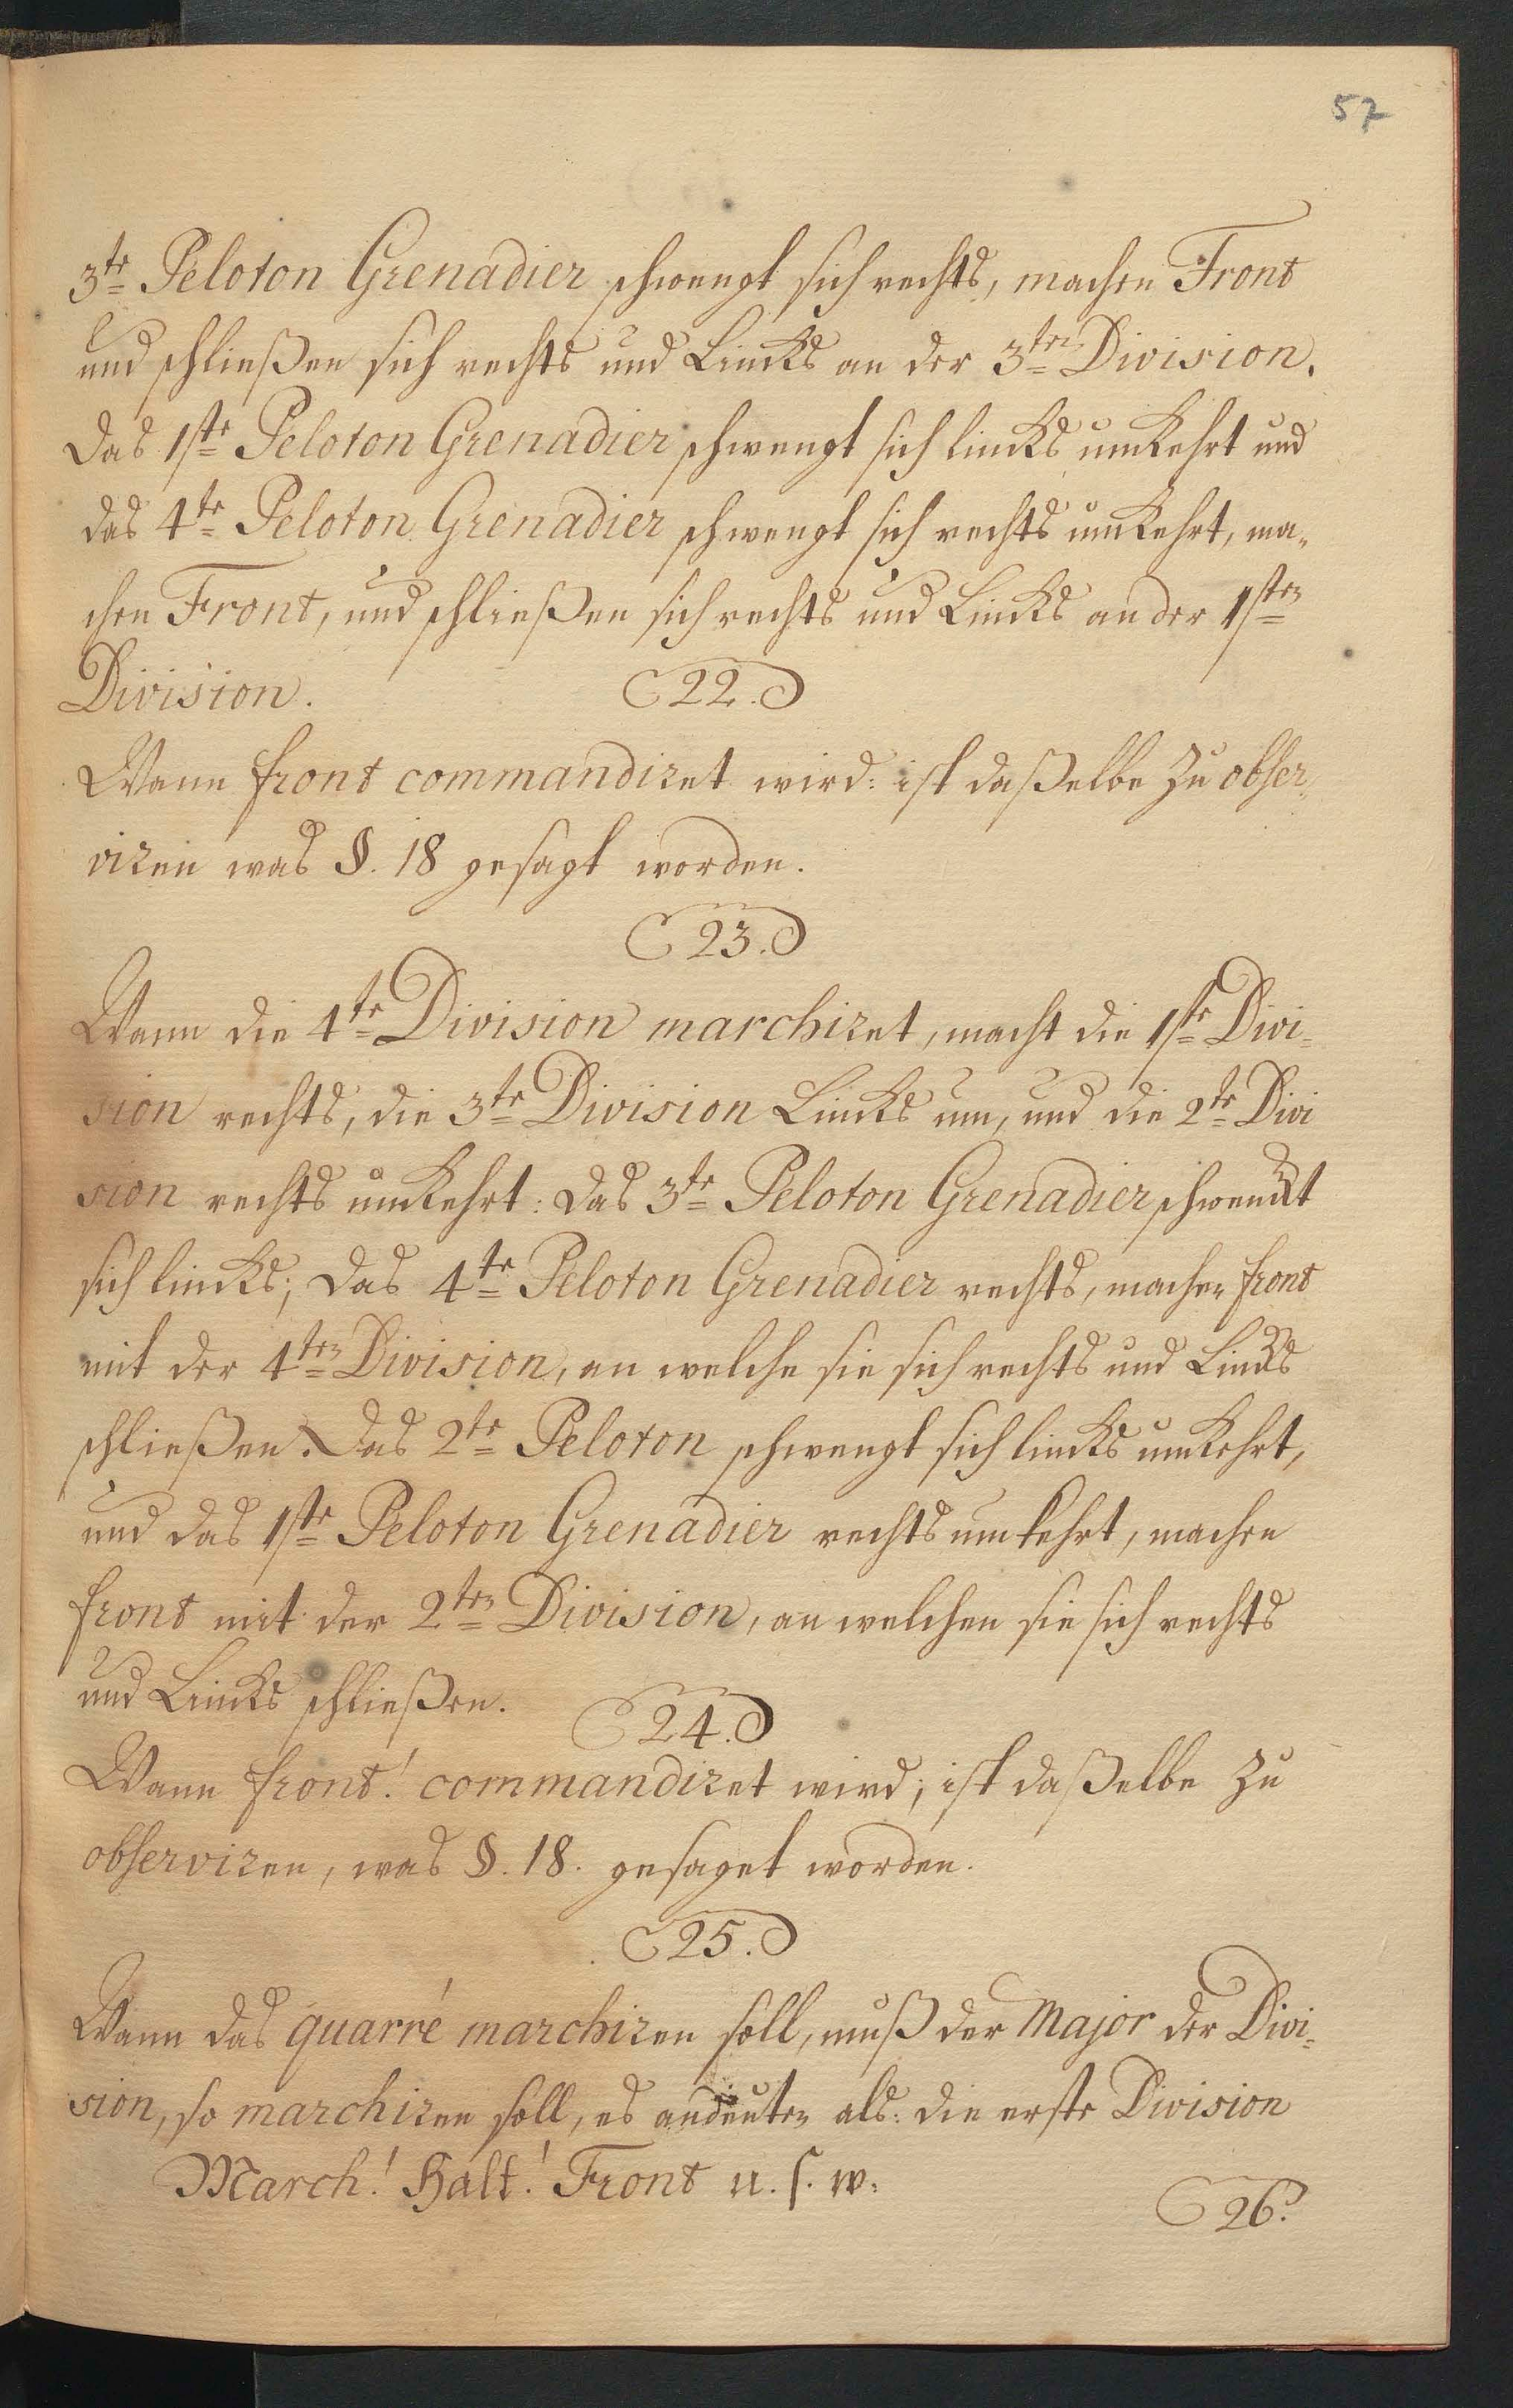 57
3te Peloton Grenadier schwengt sich rechts, machen Front
und schließen sich rechts und Lincks an der 3ten Division.
Das 1ste Peloton Grenadier schwengt sich lincks umkehrt und
das 4te Peloton Grenadier schwengt sich rechts umkehrt, ma¬
chen Front, und schließen sich rechts und Lincks an der 1sten
Division.
22.
Wann front commandiret wird: ist daßelbe zu obser¬
viren was §. 18 gesagt worden.
23.
Wann die 4te Division marchiret, macht die 1ste Divi¬
sion rechts, die 3te Division Lincks um, und die 2te Divi
sion rechts umkehrt: Das 3te Peloton Grenadier schwenckt
sich lincks; Das 4te Peloton Grenadier rechts, machen front
mit der 4ten Division, an welche sie sich rechts und Lincks
schließen. Das 2te Peloton schwengt sich lincks umkehrt,
und das 1ste Peloton Grenadier rechts umkehrt, machen
front mit der 2ten Division, an welchen sie sich rechts
und Lincks schließen.
24.
Wann front! commandiret wird; ist daßelbe zu
observiren, was §. 18. gesaget worden.
25.
Wann das quarré marchiren soll, muß der Major der Divi¬
sion, so marchiren soll, es andeuten als: die erste Division
March! Halt! Front u. s. w.
26.